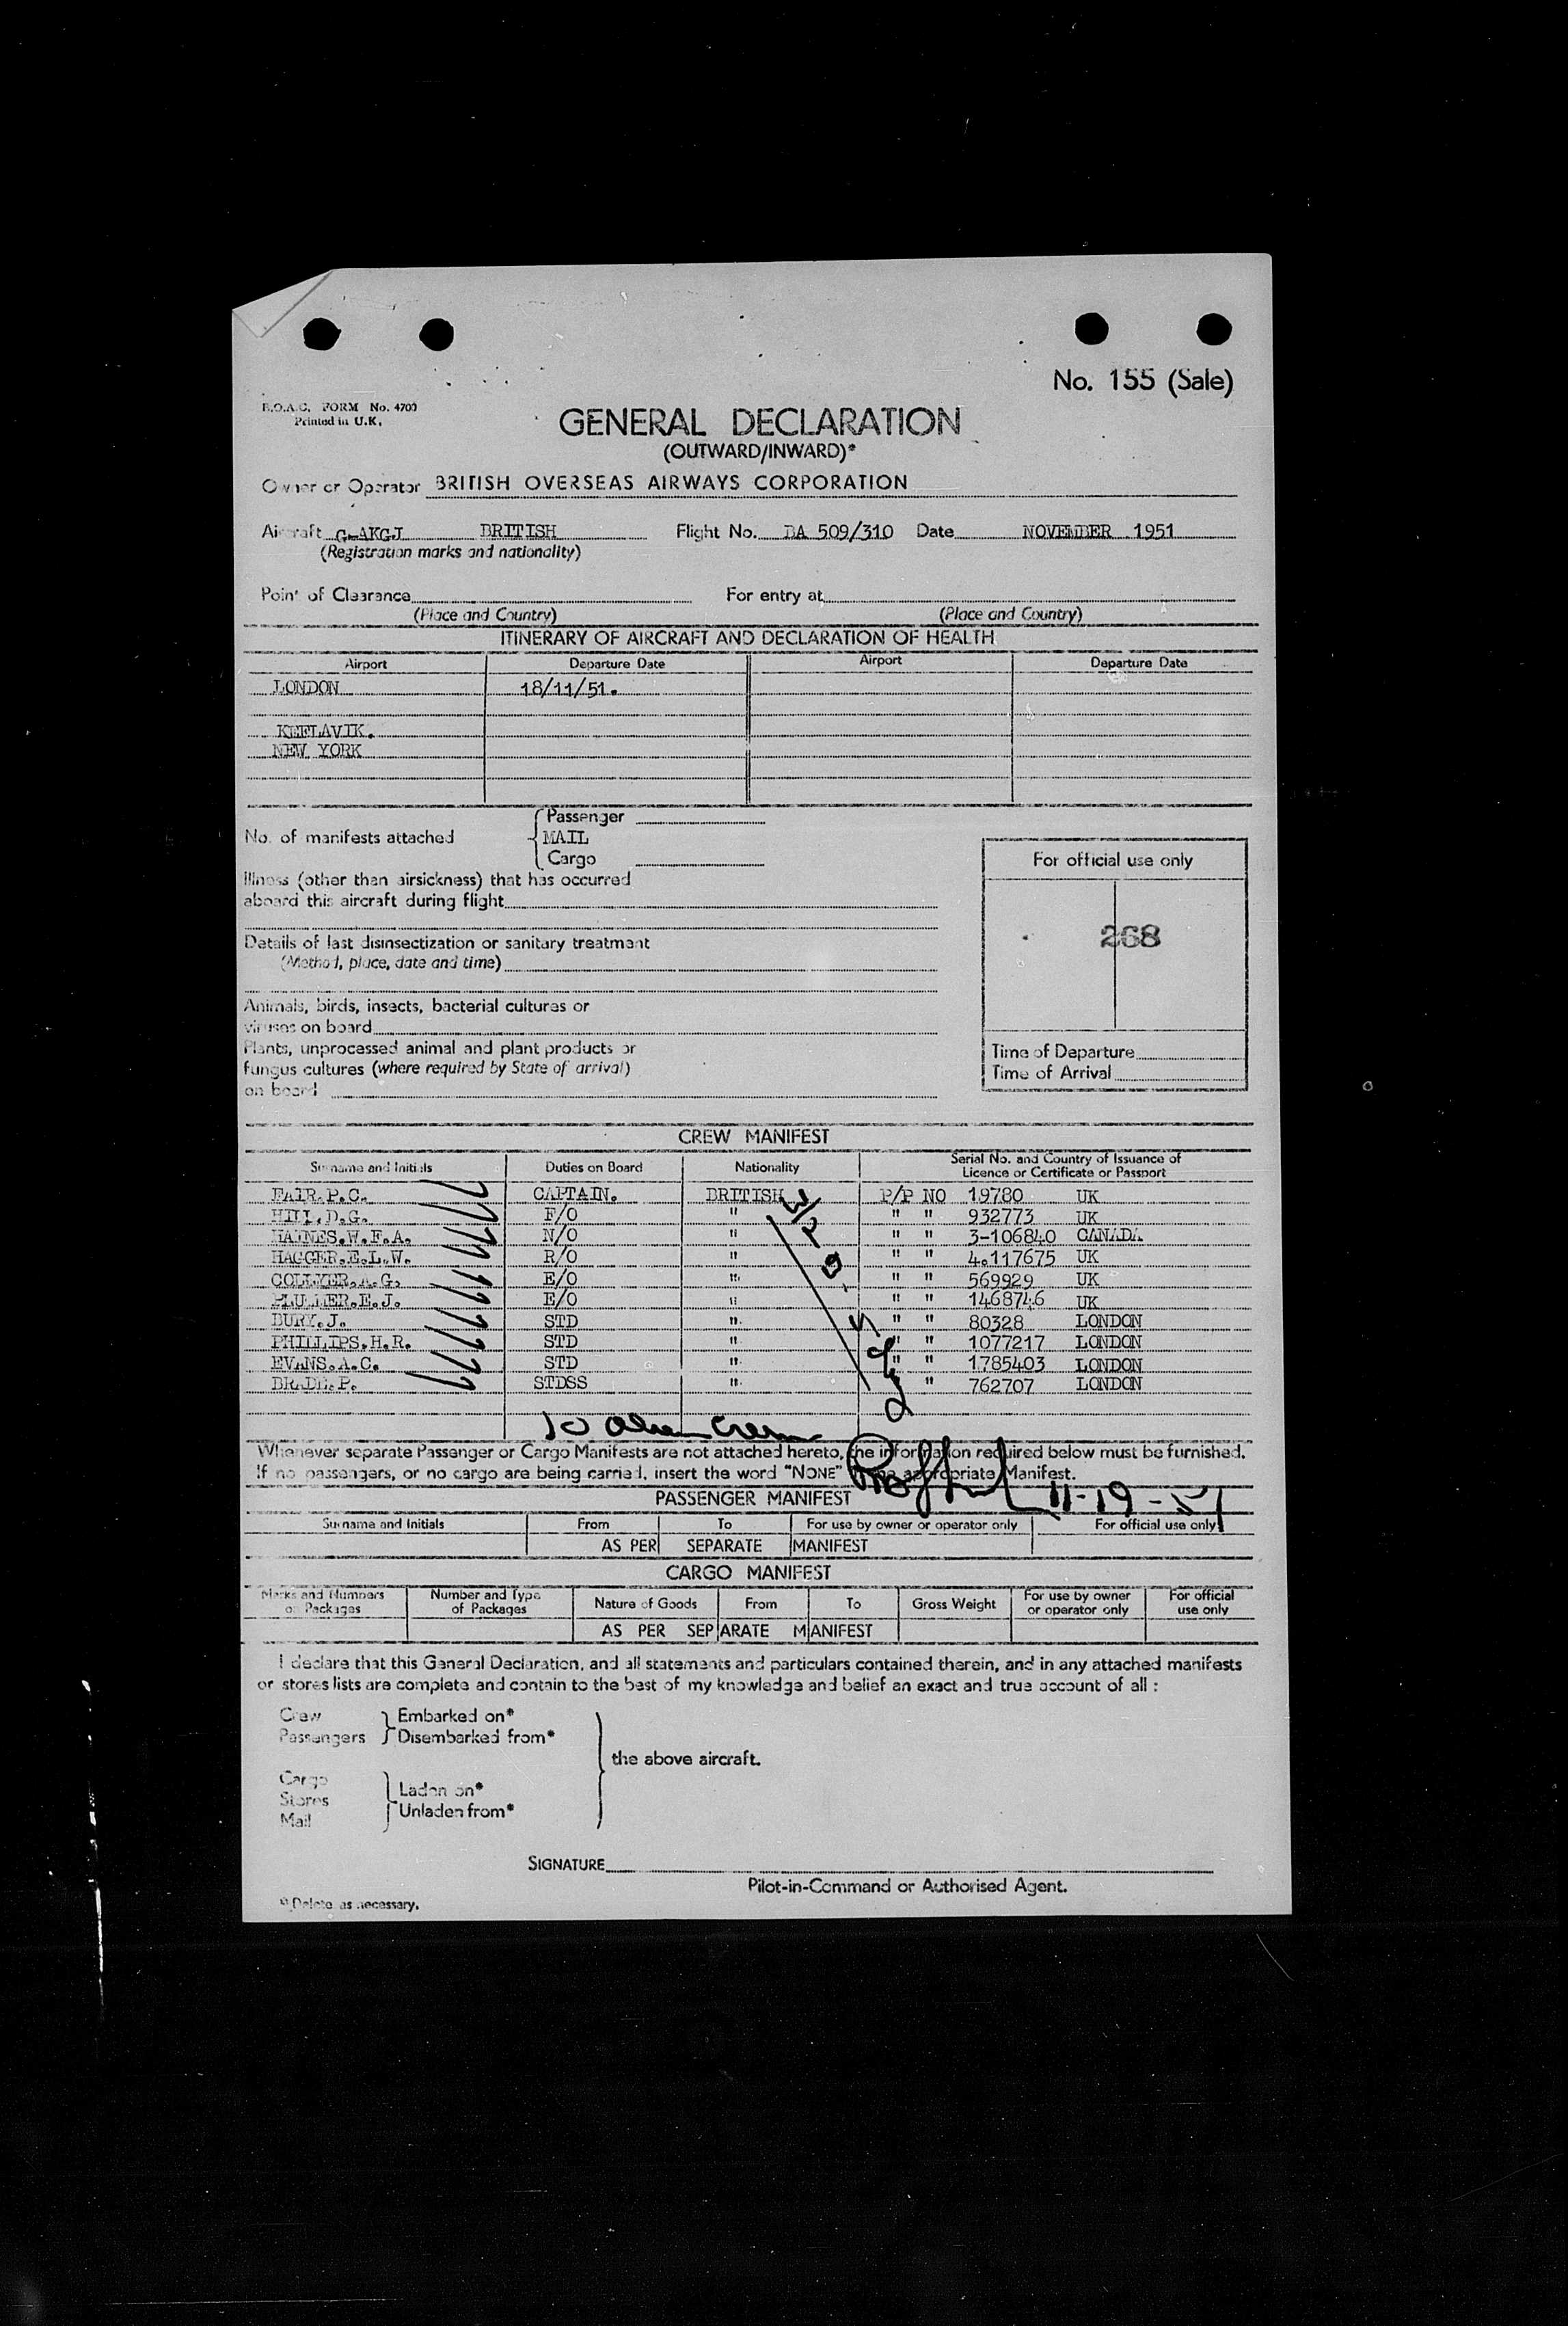 No. 155 (Sale)
B.O.A.C. FORM No. 4700
Printed in U.K.
GENERAL DECLARATION
(OUTWARD/INWARD)*
Owner or Operator BRITISH OVERSEAS AIRWAYS CORPORATION
Aircraft G-AKGJ BRITISH Flight No. BA 509/310 Date NOVEMBER 1951
(Registration marks and nationality)
Point of Clearance For entry at
(Place and Country) (Place and Country)
ITINERARY OF AIRCRAFT AND DECLARATION OF HEALTH
Airport Departure Date Airport Departure Date
LONDON 18/11/51.
KEFLAVIK.
NEW YORK
Passenger
No. of manifests attached MAIL
Cargo
For official use only
Illness (other than airsickness) that has occurred
aboard this aircraft during flight
268
Details of last disinsectization or sanitary treatment
(Method, place, date and time)
Animals, birds, insects, bacterial cultures or
viruses on board
Plants, unprocessed animal and plant products or
fungus cultures (where required by State of arrival)
on board
Time of Departure
Time of Arrival
CREW MANIFEST
Surname and Initials Duties on Board Nationality Serial No. and Country of Issuance of
Licence or Certificate or Passport
FAIR.P.C. CAPTAIN. BRITISH P/P NO 19780 UK
HILL.D.G. F/O " " " 932773 UK
HAINES.W.F.A. N/O " " " 3-106840 CANADA
HAGGER.E.L.W. R/O " " " 4.117675 UK
COLLYER.A.G. E/O " " " 569929 UK
PLUMMER.E.J. E/O " " " 1468746 UK
BURY.J. STD " " " 80328 LONDON
PHILLIPS.H.R. STD " " " 1077217 LONDON
EVANS.A.C. STD " " " 1785403 LONDON
BRADE.P. STDSS " " 762707 LONDON
10 alien crew
Whenever separate Passenger or Cargo Manifests are not attached hereto, the information required below must be furnished.
If no passengers, or no cargo are being carried, insert the word "NONE" in the appropriate Manifest.
11-19-51
PASSENGER MANIFEST
Surname and Initials From To For use by owner or operator only For official use only
AS PER SEPARATE MANIFEST
CARGO MANIFEST
Marks and Numbers on Packages Number and Type of Packages Nature of Goods From To Gross Weight For use by owner or operator only For official use only
AS PER SEPARATE MANIFEST
I declare that this General Declaration, and all statements and particulars contained therein, and in any attached manifests
or stores lists are complete and contain to the best of my knowledge and belief an exact and true account of all :
Crew Embarked on*
Passengers Disembarked from*
the above aircraft.
Cargo
Stores Laden on*
Mail Unladen from*
SIGNATURE
Pilot-in-Command or Authorised Agent.
* Delete as necessary.